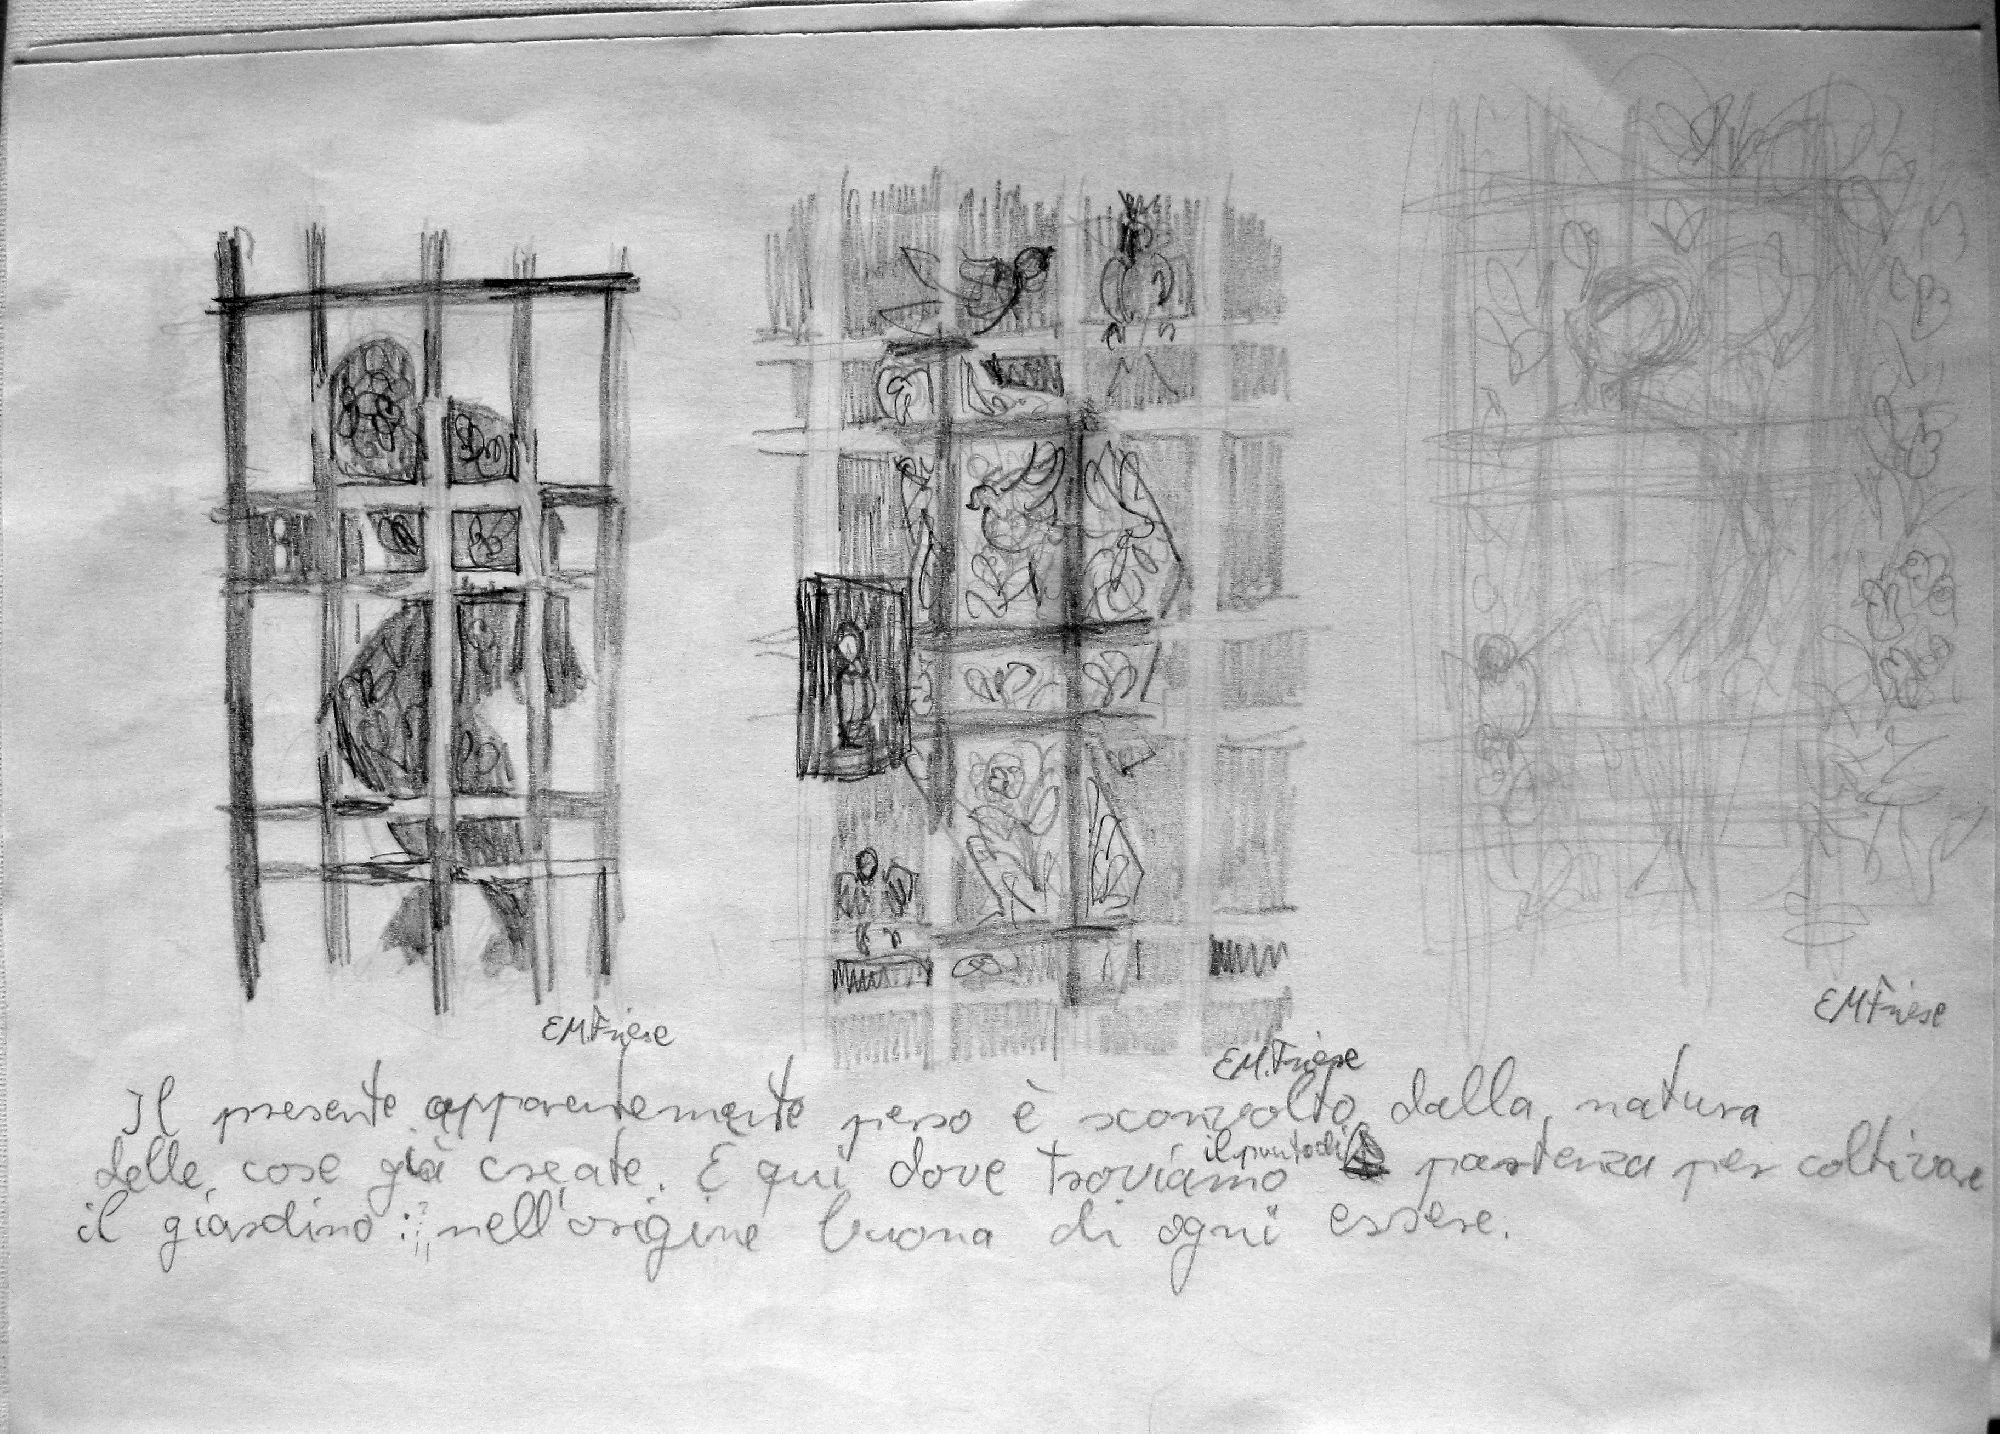 EM.Friese
EM.Friese
EMFriese
Il presente apparentemente perso è sconvolto dalla natura
delle cose già create. È qui dove troviamo il punto di partenza per coltivare
il giardino: nell'origine buona di ogni essere.